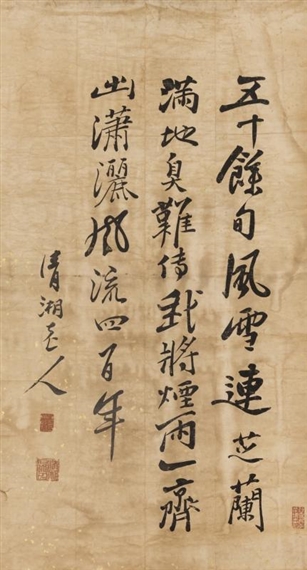 五十餘旬風雪連芝蘭
滿地臭難傳我將煙雨一齊
出瀟灑風流四百年
清湖老人